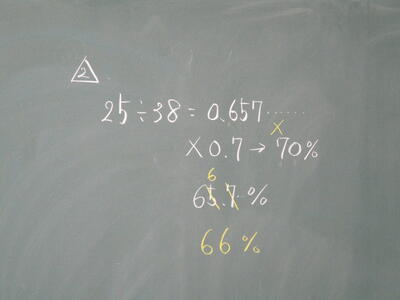 2
25÷38=0.657……
×0.7→70%
65.7…%
6
66%